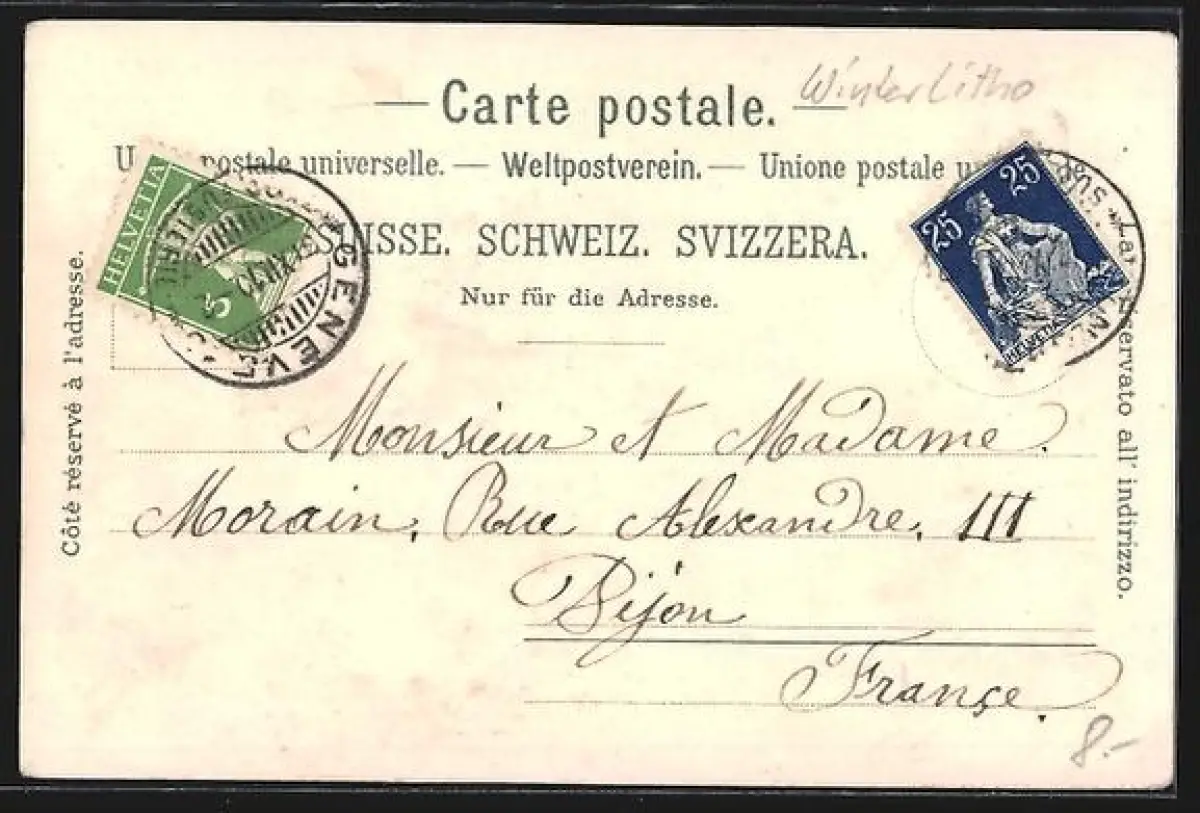 Winter Litho
— Carte postale. —
postale universelle. — Weltpostverein. — Unione postale
SUISSE. SCHWEIZ. SVIZZERA.
Nur für die Adresse.
HELVETIA
5
GENEVE
25 25
HELVETIA
Côté réservé à l'adresse.
Lato riservato all' indirizzo.
Monsieur et Madame
Morain, Rue Alexandre, III
Dijon
Françe.
8.-